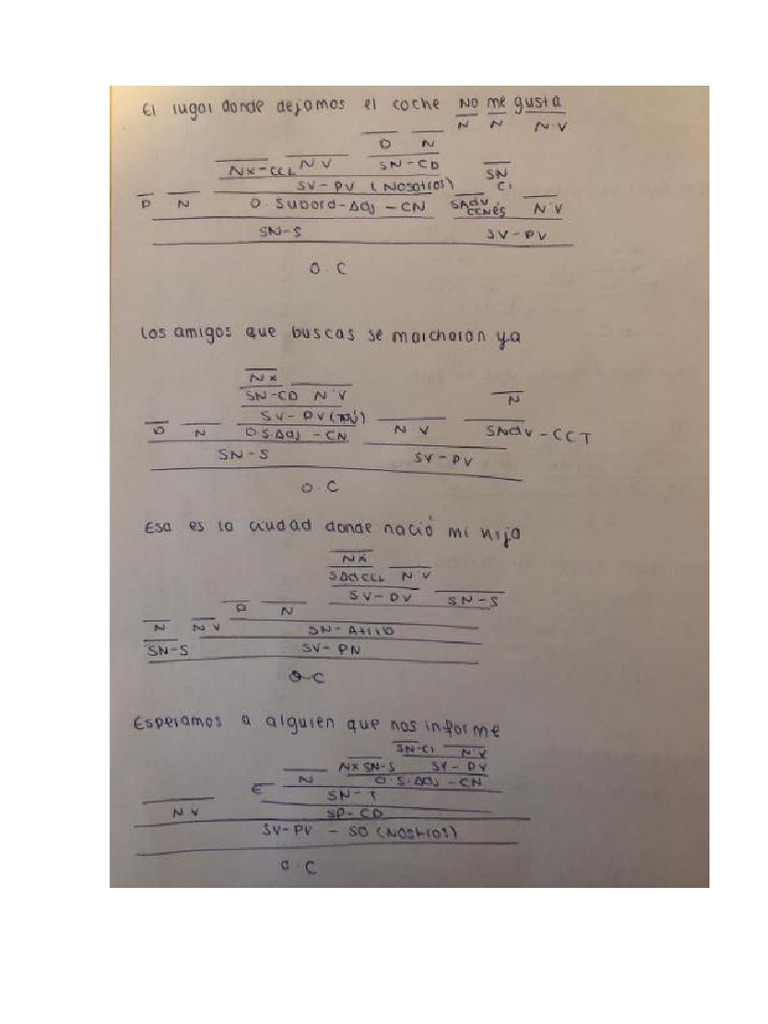 El lugar donde dejamos el coche No me gusta
N N N.V
D N
Nx-CCL N V SN-CD SN
SV-PV (Nosotros) CI
D N O.Subord-Adj-CN SAdv N V
CCNeg
SN-S SV-PV
O.C
Los amigos que buscas se marcharon ya
Nx N
SN-CD N V
SV-PV(Tú)
D N O S.Adj-CN N V SNadv-CCT
SN-S SV-PV
O.C
Esa es la ciudad donde nació mi hijo
Nx
SAdCCL N V
SV-PV SN-S
D N
N N V SN-Atrib
SN-S SV-PN
O.C
Esperamos a alguien que nos informe
SN-CI N V
Nx SN-S SV-PV
E N O.S.Adj-CN
SN-T
N V SP-CD
SV-PV - SO (Nostros)
O.C